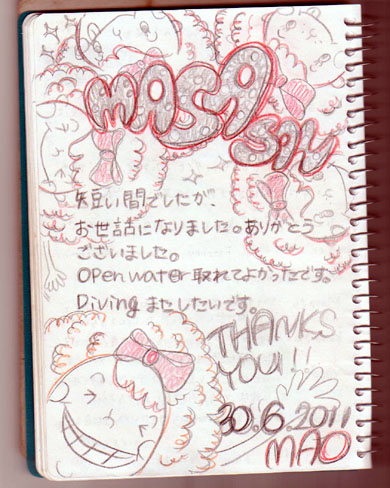 MASA
SAN
短い間でしたが、
お世話になりました。ありがとう
ございました。
Open water 取れてよかったです。
Diving またしたいです。
THANKS
YOU!!
30.6.2011
MAO